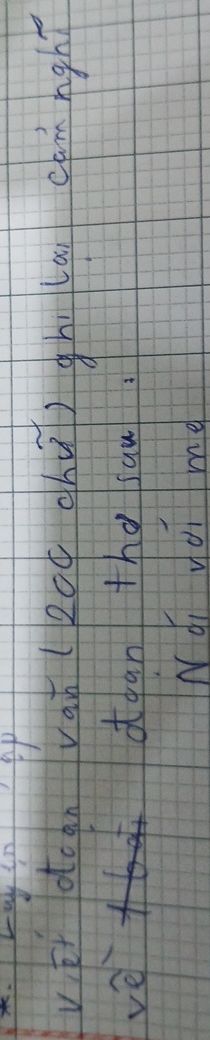 viết đoạn văn (200 chữ) ghi lại cảm nghĩ
về đoạn thơ sau:
Nói với mẹ